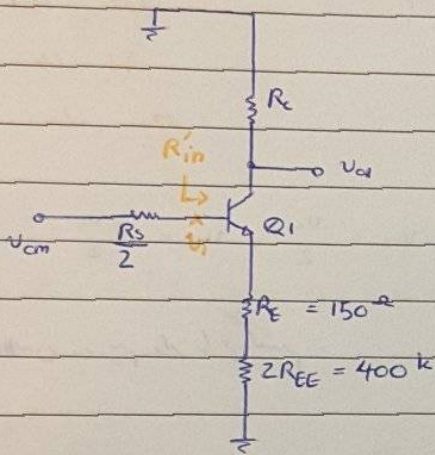 Rc
R'in
vo1
Q1
vcm
Rs/2
RE = 150 Ω
2REE = 400 k